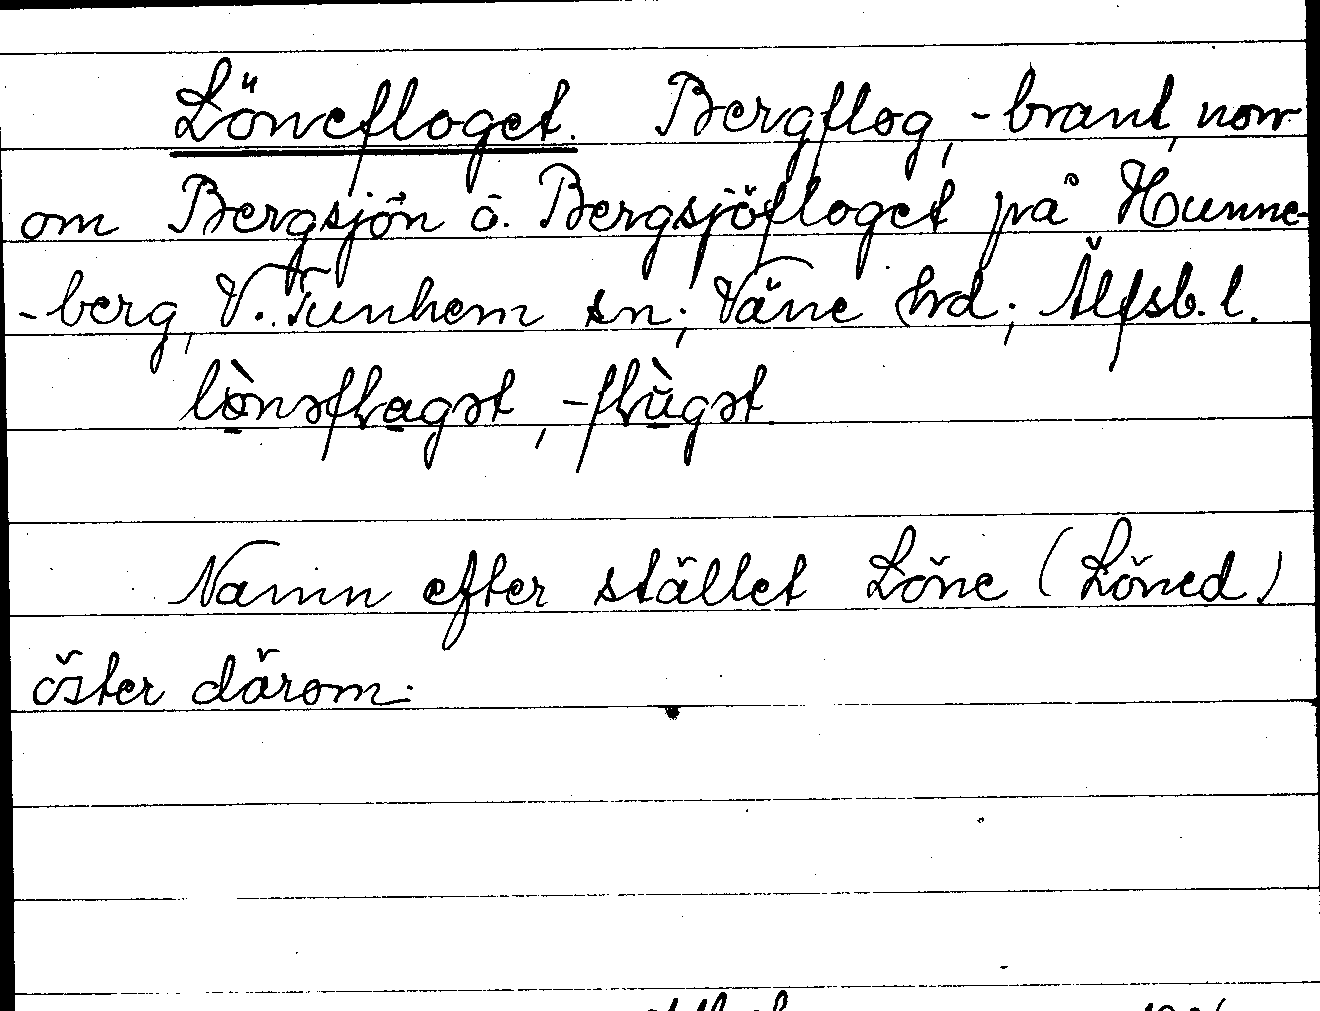 Lönefloget. Bergflog, -brant, norr
om Bergsjön o. Bergsjöfloget på Hunne-
-berg, V. Tunhem sn; Väne hd; Älfsb. l.
lò̱nəfla̱gət, -flù̱gət.
Namn efter stället Löne (Löned)
öster därom.